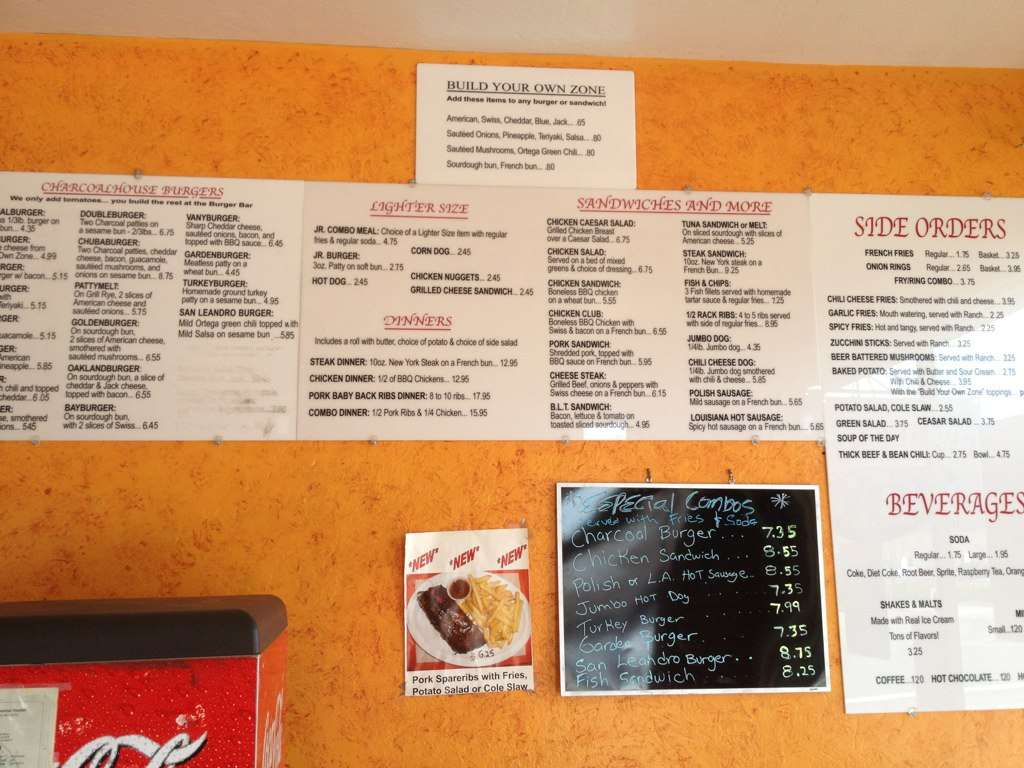 BUILD YOUR OWN ZONE
Add these items to any burger or sandwich!
American, Swiss, Cheddar, Blue, Jack... .65
Sautéed Onions, Pineapple, Teriyaki, Salsa... .80
Sautéed Mushrooms, Ortega Green Chili... .80
Sourdough bun, French bun... .80
CHARCOALHOUSE BURGERS
We only add tomatoes... you build the rest at the Burger Bar
ALBURGER:
s 1/3lb. burger on
bun... 4.35
URGER:
cheese from
Own Zone... 4.99
RGER:
rger w/ bacon...5.15
URGER:
with
Teriyaki... 5.15
GER:
uacamole...5.15
GER:
American
ineapple... 5.85
ER:
h chili and topped
cheddar... 6.05
ER:
se, smothered
ions... 5.45
DOUBLEBURGER:
Two Charcoal patties on
a sesame bun - 2/3lbs... 6.75
CHUBABURGER:
Two Charcoal patties, cheddar
cheese, bacon, guacamole,
sautéed mushrooms, and
onions on sesame bun... 8.75
PATTYMELT:
On Grill Rye, 2 slices of
American cheese and
sautéed onions... 5.75
GOLDENBURGER:
On sourdough bun,
2 slices of American cheese,
smothered with
mushrooms... 6.55
OAKLANDBURGER:
On sourdough bun, a slice of
cheddar & Jack cheese,
topped with bacon... 6.55
BAYBURGER:
On sourdough bun,
with 2 slices of Swiss... 6.45
VANYBURGER:
Sharp Cheddar cheese,
sautéed onions, bacon, and
topped with BBQ sauce... 6.45
GARDENBURGER:
Meatless patty on a
wheat bun... 4.45
TURKEYBURGER:
Homemade ground turkey
patty on a sesame bun... 4.95
SAN LEANDRO BURGER:
Mild Ortega green chili topped with
Mild Salsa on sesame bun ...5.85
LIGHTER SIZE
JR. COMBO MEAL: Choice of a Lighter Size item with regular
fries & regular soda... 4.75
JR. BURGER:
3oz. Patty on soft bun... 2.75
HOT DOG... 2.45
CORN DOG... 2.45
CHICKEN NUGGETS... 2.45
GRILLED CHEESE SANDWICH... 2.45
DINNERS
Includes a roll with butter, choice of potato & choice of side salad
STEAK DINNER: 10oz. New York Steak on a French bun... 12.95
CHICKEN DINNER: 1/2 of BBQ Chickens... 12.95
PORK BABY BACK RIBS DINNER: 8 to 10 ribs... 17.95
COMBO DINNER: 1/2 Pork Ribs & 1/4 Chicken... 15.95
SANDWICHES AND MORE
CHICKEN CAESAR SALAD:
Grilled Chicken Breast
over a Caesar Salad... 6.75
CHICKEN SALAD:
Served on a bed of mixed
greens & choice of dressing... 6.75
CHICKEN SANDWICH:
Boneless BBQ chicken
on a wheat bun... 5.55
CHICKEN CLUB:
Boneless BBQ Chicken with
Swiss & bacon on a French bun... 6.55
PORK SANDWICH:
Shredded pork, topped with
BBQ sauce on French bun... 5.95
CHEESE STEAK:
Grilled Beef, onions & peppers with
Swiss cheese on a French bun... 6.15
B.L.T. SANDWICH:
Bacon, lettuce & tomato on
toasted sliced sourdough... 4.95
TUNA SANDWICH or MELT:
On sliced sourdough with slices of
American cheese... 5.25
STEAK SANDWICH:
10oz. New York steak on a
French Bun... 9.25
FISH & CHIPS:
3 Fish fillets served with homemade
tartar sauce & regular fries... 7.25
1/2 RACK RIBS: 4 to 5 ribs served
with side of regular fries... 8.95
JUMBO DOG:
1/4lb. Jumbo dog... 4.35
CHILI CHEESE DOG:
1/4lb. Jumbo dog smothered
with chili & cheese... 5.85
POLISH SAUSAGE:
Mild sausage on a French bun... 5.65
LOUISIANA HOT SAUSAGE:
Spicy hot sausage on a French bun... 5.65
SIDE ORDERS
FRENCH FRIES Regular... 1.75 Basket... 3.25
ONION RINGS Regular... 2.65 Basket... 3.95
FRY/RING COMBO... 3.75
CHILI CHEESE FRIES: Smothered with chili and cheese... 3.95
GARLIC FRIES: Mouth watering, served with Ranch... 2.25
SPICY FRIES: Hot and tangy, served with Ranch... 2.25
ZUCCHINI STICKS: Served with Ranch... 3.25
BEER BATTERED MUSHROOMS: Served with Ranch... 3.25
BAKED POTATO: Served with Butter and Sour Cream... 2.75
With Chili & Cheese... 3.95
With the "Build Your Own Zone" toppings...
POTATO SALAD, COLE SLAW... 2.55
GREEN SALAD... 3.75 CEASAR SALAD ... 3.75
SOUP OF THE DAY
THICK BEEF & BEAN CHILI: Cup... 2.75 Bowl... 4.75
BEVERAGES
SODA
Regular... 1.75 Large... 1.95
Coke, Diet Coke, Root Beer, Sprite, Raspberry Tea, Orang
SHAKES & MALTS
Made with Real Ice Cream
Tons of Flavors!
3.25
MI
Small...1.20
COFFEE...1.20 HOT CHOCOLATE...1.20 H
*NEW* *NEW* *NEW*
$6.25
Pork Spareribs with Fries,
Potato Salad or Cole Slaw
* ESPECIAL COMBOS *
Served with Fries & Soda
Charcoal Burger ... 7.35
Chicken Sandwich ... 8.55
Polish or L.A. HOT Sausage.. 8.55
Jumbo HOT Dog ... 7.35
Turkey Burger ... 7.99
Garden Burger ... 7.35
San Leandro Burger.. 8.75
Fish Sandwich .... 8.25